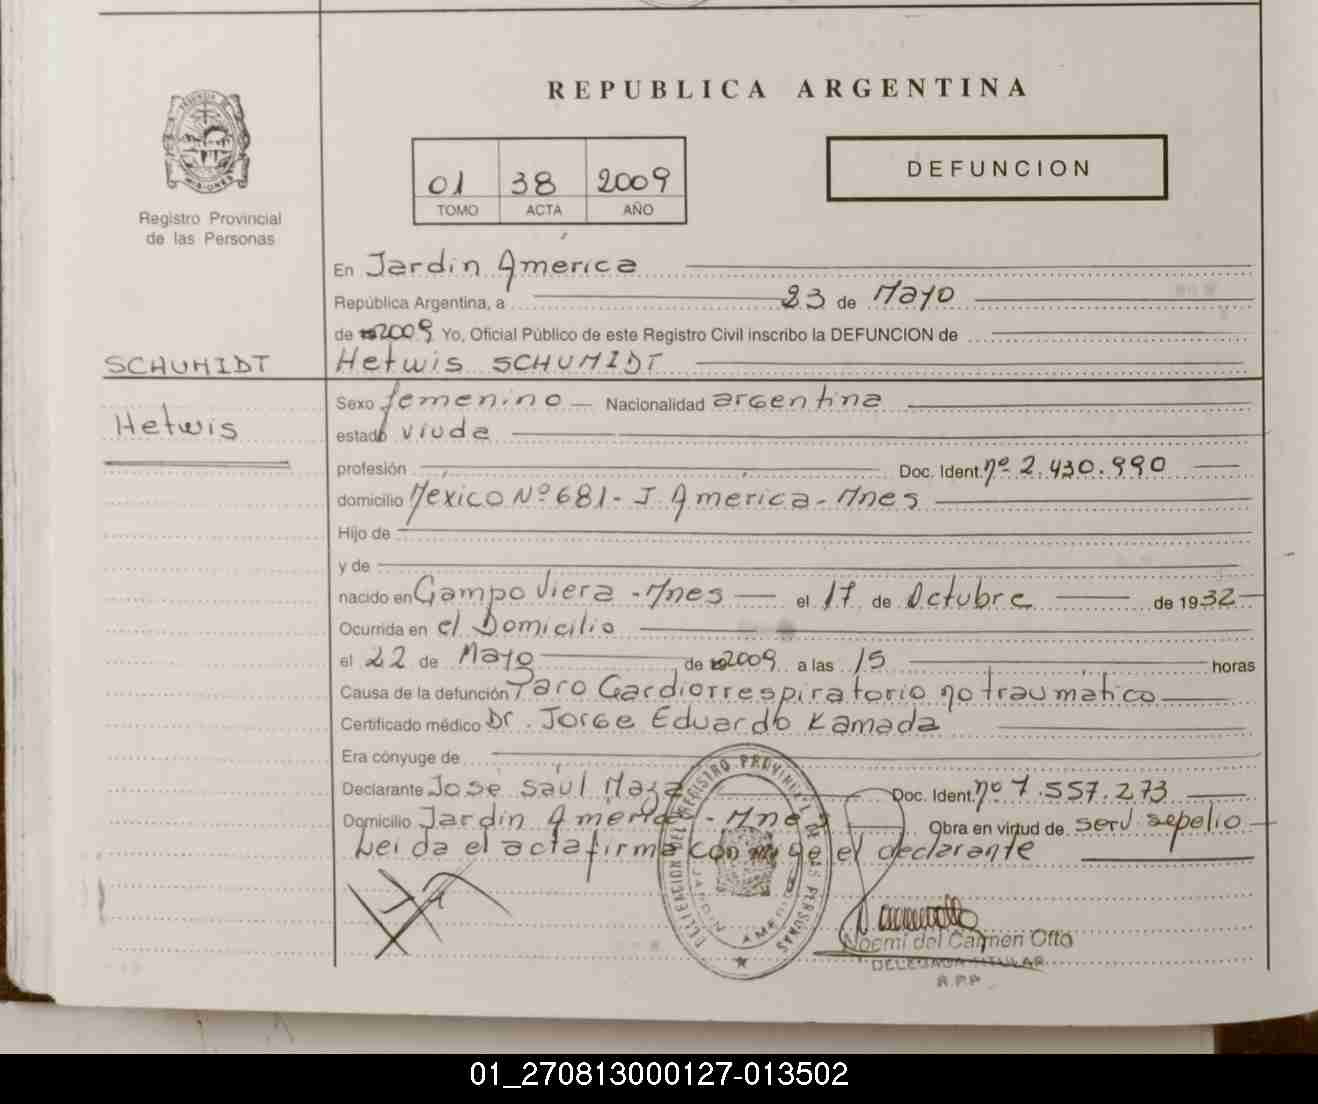 REPUBLICA ARGENTINA
PROVINCIA DE MISIONES
Registro Provincial
de las Personas
01 38 2009
TOMO ACTA AÑO
DEFUNCION
En Jardin America
República Argentina, a 23 de Mayo
de 2009 Yo, Oficial Público de este Registro Civil inscribo la DEFUNCION de
SCHUMIDT
Hetwis SCHUMIDT
Hetwis
Sexo femenino Nacionalidad argentina
estado viuda
profesión Doc. Ident. nº 2.430.990
domicilio México Nº 681 - J. America - Mnes
Hijo de
y de
nacido en Campo Viera - Mnes el 17 de Octubre de 1932
Ocurrida en el Domicilio
el 22 de Mayo de 2009 a las 15 horas
Causa de la defunción Paro Cardiorrespiratorio no traumatico
Certificado médico Dr. Jorge Eduardo Kamada
Era cónyuge de
Declarante José Saúl Maza Doc. Ident. nº 7.557.273
Domicilio Jardin America - Mnes Obra en virtud de serv sepelio
Leida el acta firma conmige el declarante
DELEGACION DEL REGISTRO PROVINCIAL DE LAS PERSONAS
JARDIN AMERICA
Noemi del Carmen Otto
DELEGADA TITULAR
R.P.P.
01_270813000127-013502